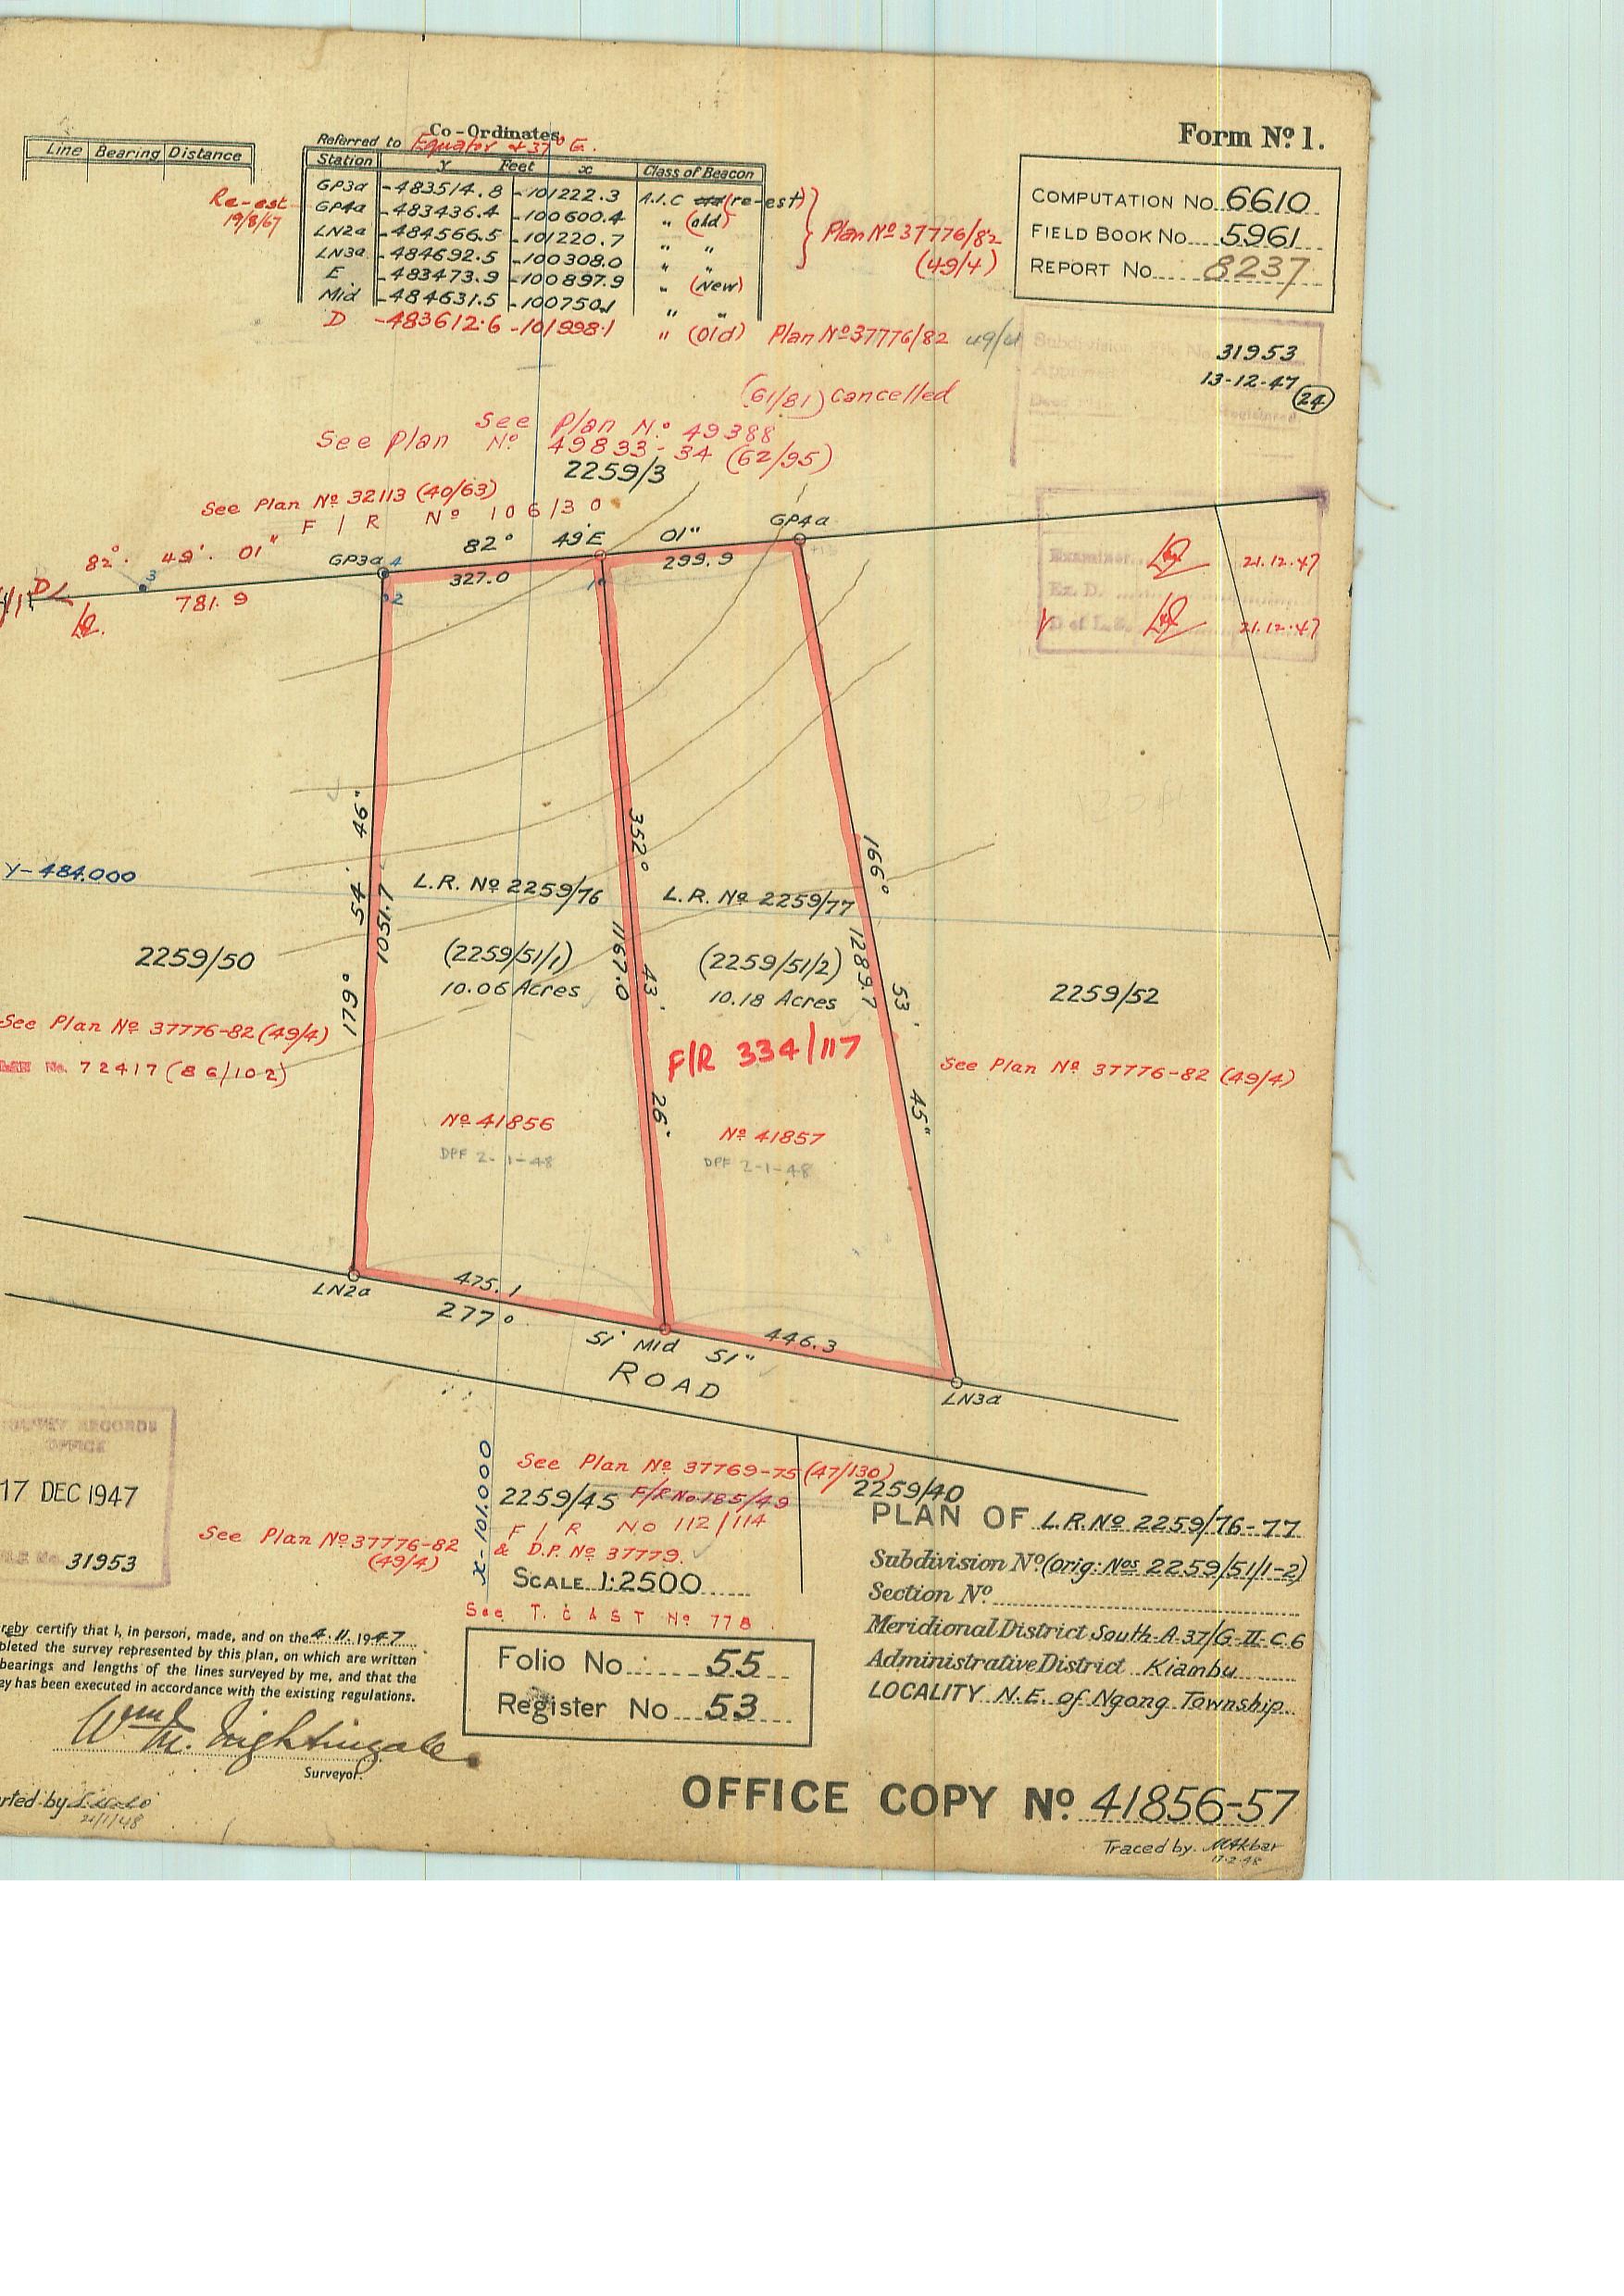 Form Nº 1.
Line Bearing Distance
Co-Ordinates
Referred to Equator & 37° E.
Station Y Feet x Class of Beacon
GP3a -483514.8 -101222.3 A.I.C old (re-est)
GP4a -483436.4 -100600.4 " (old)
LN2a -484566.5 -101220.7 " "
LN3a -484692.5 -100308.0 " "
E -483473.9 -100897.9 " (New)
Mid -484631.5 -100750.1 " "
D -483612.6 -101998.1 " (Old) Plan Nº 37776/82 49/4
Re-est
19/8/67
Plan Nº 37776/82
(49/4)
COMPUTATION No. 6610
FIELD BOOK No. 5961
REPORT No. 8237
31953
13-12-47
24
(61/81) Cancelled
See Plan N.º 49388
See Plan Nº 49833-34 (62/95)
2259/3
See Plan Nº 32113 (40/63)
F/R Nº 106/30
82° 49' 01"
GP3a
82° 49' E 01"
GP4a
4
3
2
1
D
781.9
327.0
299.9
Examiner
21.12.47
Ex. D.
D of L.S.
21.12.47
179° 54' 46"
1051.7
352° 43' 26"
1167.0
166° 53' 45"
1289.7
Y-484.000
L.R. Nº 2259/76
L.R. Nº 2259/77
2259/50
(2259/51/1)
10.06 Acres
(2259/51/2)
10.18 Acres
2259/52
See Plan Nº 37776-82 (49/4)
No. 72417 (86/102)
F/R 334/117
See Plan Nº 37776-82 (49/4)
Nº 41856
DPF 2-1-48
Nº 41857
DPF 2-1-48
LN2a
475.1
277° 51' Mid 51"
446.3
LN3a
ROAD
SURVEY RECORDS
OFFICE
17 DEC 1947
31953
x-101.000
See Plan Nº 37769-75 (47/130)
2259/45 F/R No 185/49
2259/40
F/R No 112/114
& D.P. Nº 37779.
See Plan Nº 37776-82
(49/4)
SCALE 1:2500
See T. CAST Nº 778
Folio No. 55
Register No 53
PLAN OF L.R. Nº 2259/76-77
Subdivision Nº (Orig: Nos 2259/51/1-2)
Section Nº
Meridional District South A 37/G-II-C.6
Administrative District Kiambu
LOCALITY N.E. of Ngong Township
reby certify that I, in person, made, and on the 4.11.1947
pleted the survey represented by this plan, on which are written
bearings and lengths of the lines surveyed by me, and that the
ey has been executed in accordance with the existing regulations.
Wm M. Nightingale
Surveyor.
rted by
21/1/48
OFFICE COPY Nº 41856-57
Traced by. MAkbar
17-2-48